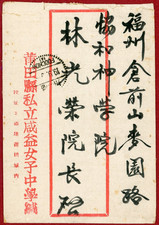 福州倉前山麥園路
協和神学院
林光榮院長啓
莆田縣私立咸益女子中學緘